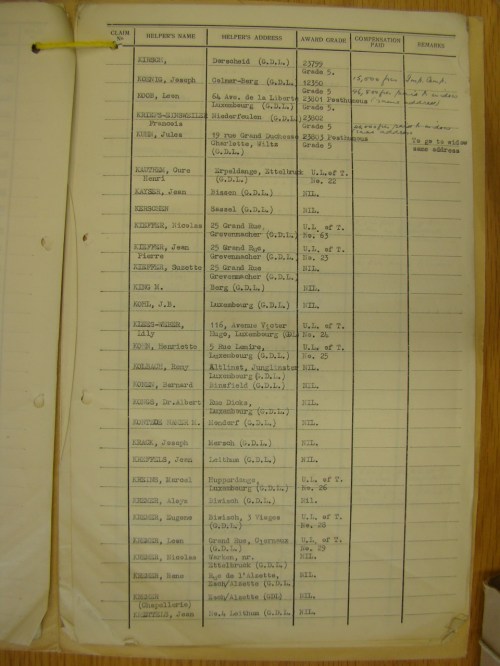 CLAIM No HELPER'S NAME HELPER'S ADDRESS AWARD GRADE COMPENSATION PAID REMARKS
KIRSCH, Derscheid (G.D.L.) 23799
Grade 5.
Joseph Colmar-Berg (G.D.L.) 12350
Grade 5
Leon 64 Ave. de la Liberte 23801 Posthumous
Luxembourg (G.D.L.) Grade 5 (same address)
Niederfeulen (G.D.L.) 23802
Francois Grade 5 same address
Jules 19 rue Grand Duchesse 23803 Posthumous To go to widow
Charlotte, Wiltz Grade 5 same address
(G.D.L.)
KAUTHEN, Cure Erpeldange, Ettelbruck U.L.of T.
Henri (G.D.L.) No. 22
KAYSER, Jean Bissen (G.D.L.) NIL.
(G.D.L.) NIL.
KIEFFER, Nicolas 25 Grand Rue, U.L. of T.
Grevenmacher (G.D.L.) No. 63
KIEFFER, Jean 25 Grand Rue, U.L. of T.
Pierre Grevenmacher (G.D.L.) No. 23
KIEFFER, Suzette 25 Grand Rue NIL.
Grevenmacher (G.D.L.)
KING M. Berg (G.D.L.) NIL.
J.B. Luxembourg (G.D.L.) NIL.
116, Avenue Victor U.L. of T.
Lily Hugo, Luxembourg (GDL) No. 24
Henriette 5 Rue Lemire, U.L. of T.
Luxembourg (G.D.L.) No. 25
KOLBACH, Rony Altlinst, Junglinster NIL.
Luxembourg (G.D.L.)
Bernard Binsfield (G.D.L.) NIL.
Dr.Albert Rue Dicks, NIL.
Luxembourg (G.D.L.)
ROGER M. Mondorf (G.D.L.) NIL.
KRACK, Joseph Mersch (G.D.L.) NIL.
KNEFFELS, Jean Leithum (G.D.L.) NIL.
Marcel U.L. of T.
Luxembourg (G.D.L.) No. 26
KREMER, Aloys Biwisch (G.D.L.) Nil.
KREMER, Eugene Biwisch, 3 Vierges U.L. of T.
(G.D.L.) No. 28
KREMER, Leon Grand Rue, U.L. of T.
(G.D.L.) No. 29
KREMER, Nicolas Warken, nr. NIL.
Ettelbruck (G.D.L.)
KREMER, Rene Rue de l'Alzette, NIL.
Esch/Alzette (G.D.L.
KREMER Esch/Alzette (GDL) NIL.
(Chapellerie)
Jean No.4 Leithum (G.D.L.) NIL.